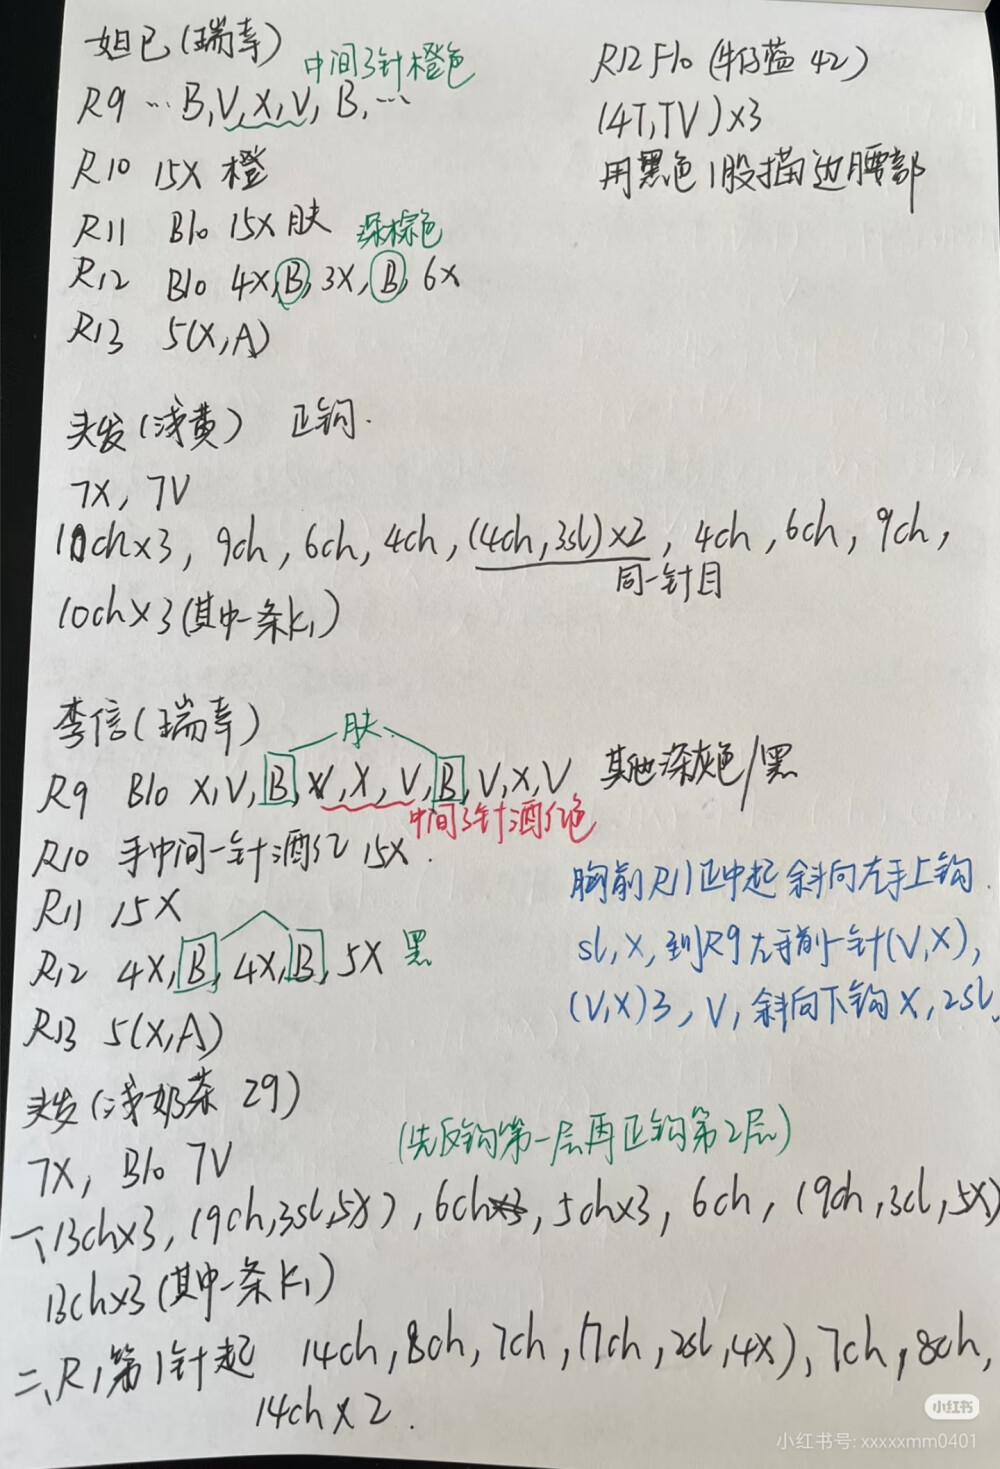 妲己(瑞幸)
中间3针橙色
R9 … B, V, X, V, B, …
R10 15X 橙
R11 Blo 15X 肤
深棕色
R12 Blo 4X, B, 3X, B, 6X
R13 5(X, A)
R12 Flo (牛仔蓝 42)
(4T, TV)×3
用黑色1股描边腰部
头发(浅黄) 正钩.
7X, 7V
10ch×3, 9ch, 6ch, 4ch, (4ch, 3sl)×2, 4ch, 6ch, 9ch,
同一针目
10ch×3(其中一条k1)
李信(瑞幸)
肤
R9 Blo X, V, B, V, X, V, B, V, X, V 其他深灰色/黑
中间3针酒红色
R10 手中间一针酒红 15X.
R11 15X
R12 4X, B, 4X, B, 5X 黑
R13 5(X, A)
胸前R11正中起斜向左手上钩
sl, X, 到R9左手前一针(V, X),
(V, X)3, V, 斜向下钩X, 2sl.
头发(浅奶茶 29)
(先反钩第一层再正钩第2层)
7X, Blo 7V
一、13ch×3, (9ch, 3sl, 5X), 6ch, 5ch×3, 6ch, (9ch, 3cl, 5X)
13ch×3(其中一条k1)
二、R1第1针起 14ch, 8ch, 7ch, (7ch, 2sl, 4X), 7ch, 8ch,
14ch×2.
小红书
小红书号: xxxxxmm0401